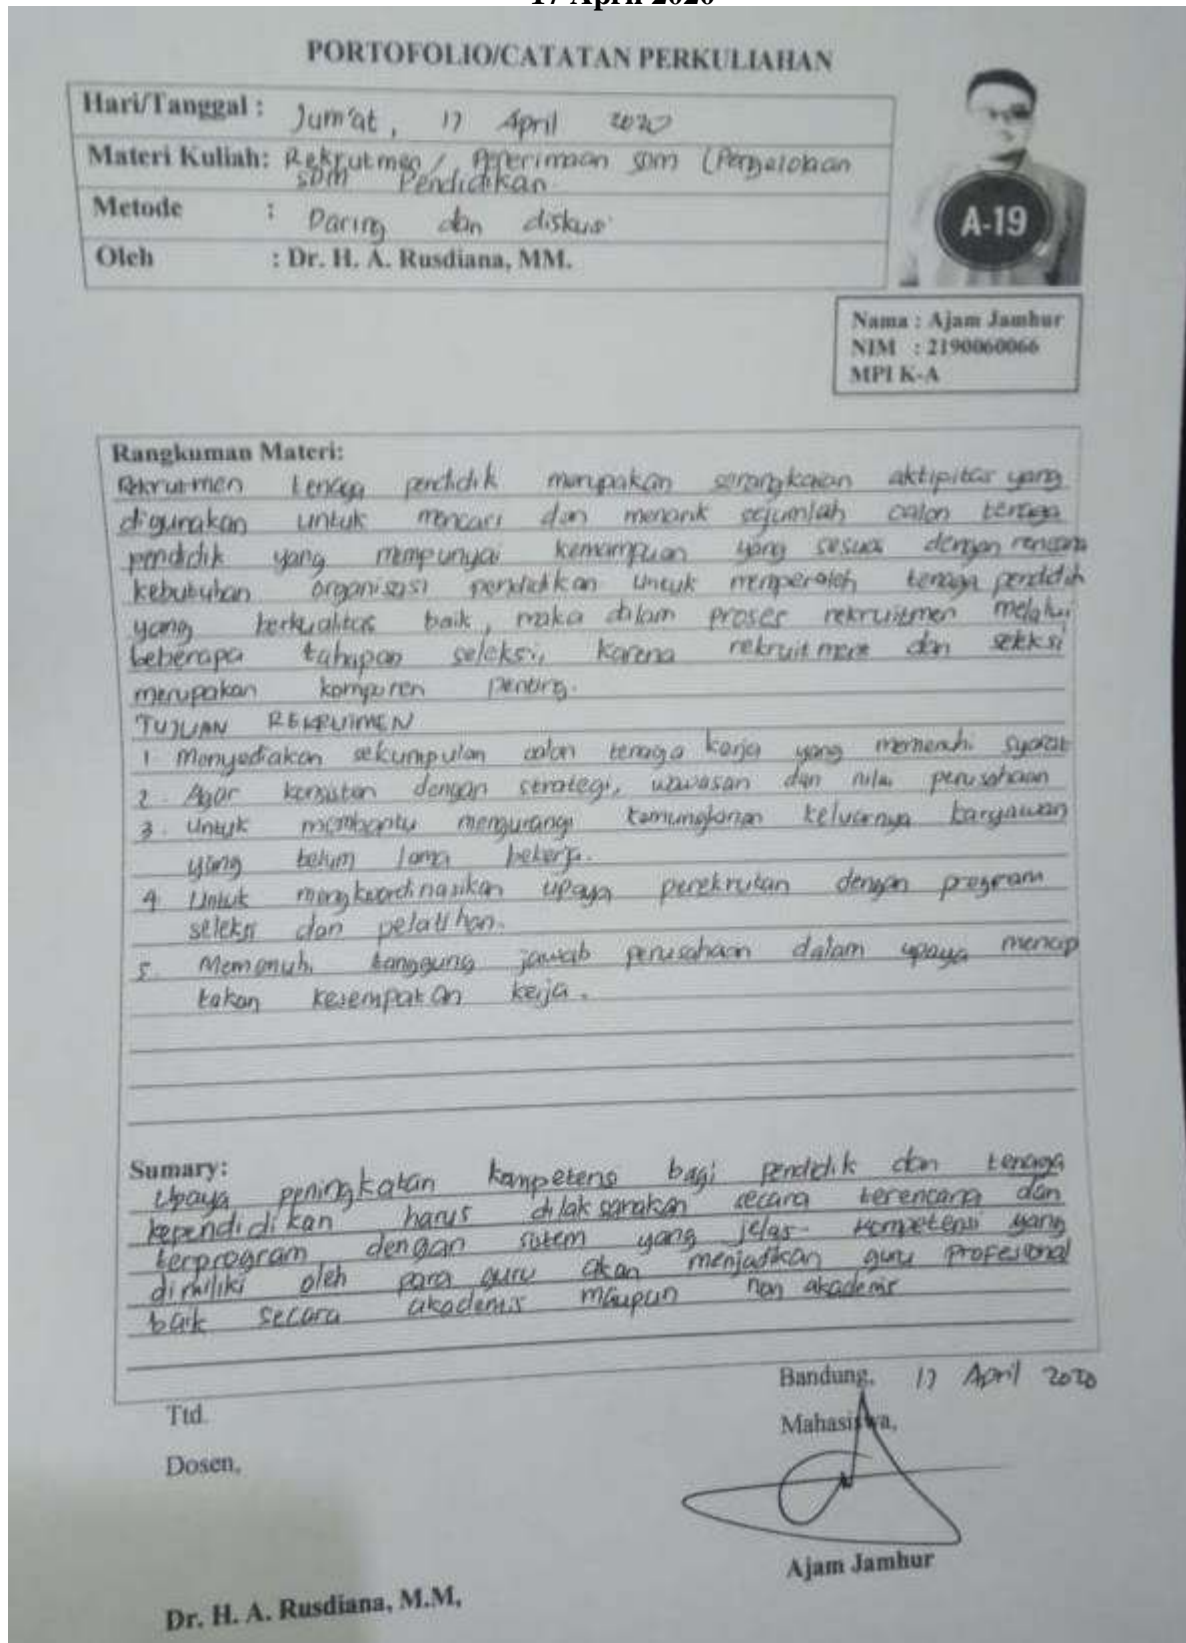 17 April 2020
PORTOFOLIO/CATATAN PERKULIAHAN
Hari/Tanggal : Jum'at, 17 April 2020
Materi Kuliah: Rekrutmen / Penerimaan SDM (Pengelolaan
SDM Pendidikan
Metode : Daring dan diskusi
Oleh : Dr. H. A. Rusdiana, MM.
A-19
Nama : Ajam Jamhur
NIM : 2190060066
MPI K-A
Rangkuman Materi:
Rekrutmen tenaga pendidik merupakan serangkaian aktipitas yang
digunakan untuk mencari dan menarik sejumlah calon tenaga
pendidik yang mempunyai kemampuan yang sesuai dengan rencana
kebutuhan organisasi pendidikan untuk memperoleh tenaga pendidik
yang berkualitas baik, maka dalam proses rekruitmen melalui
beberapa tahapan seleksi, karena rekruitment dan seleksi
merupakan komponen penting.
TUJUAN REKRUTMEN
1 Menyediakan sekumpulan calon tenaga kerja yang memenuhi syarat
2. Agar konsisten dengan strategi, wawasan dan nilai perusahaan
3. Untuk membantu mengurangi kemungkinan keluarnya karyawan
yang belum lama bekerja.
4 Untuk mengkoordinasikan upaya perekrutan dengan program
seleksi dan pelatihan.
5. Memenuhi tanggung jawab perusahaan dalam upaya mencip
takan kesempatan kerja.
Sumary:
Upaya peningkatan kompetensi bagi pendidik dan tenaga
kependidikan harus dilaksanakan secara terencana dan
terprogram dengan sistem yang jelas. Kompetensi yang
dimiliki oleh para guru akan menjadikan guru profesional
baik secara akademis maupun non akademis
Bandung, 17 April 2020
Ttd.
Mahasiswa,
Dosen,
Ajam Jamhur
Dr. H. A. Rusdiana, M.M,